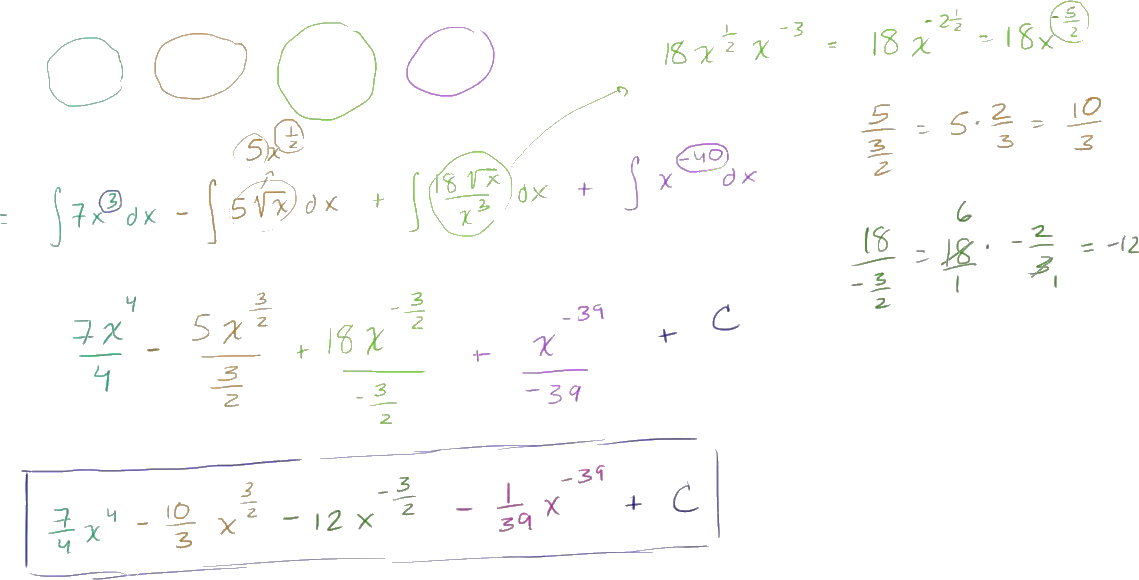 18x^{1/2} x^{-3} = 18x^{-2 1/2} = 18x^{-5/2}
5/(3/2) = 5 · 2/3 = 10/3
5x^{1/2}
= ∫ 7x^3 dx - ∫ 5√x dx + ∫ 18√x/x^3 dx + ∫ x^{-40} dx
6
18/(-3/2) = 18/1 · -2/3 = -12
1
7x^4/4 - 5x^{3/2}/(3/2) + 18x^{-3/2}/(-3/2) + x^{-39}/-39 + C
7/4 x^4 - 10/3 x^{3/2} - 12x^{-3/2} - 1/39 x^{-39} + C